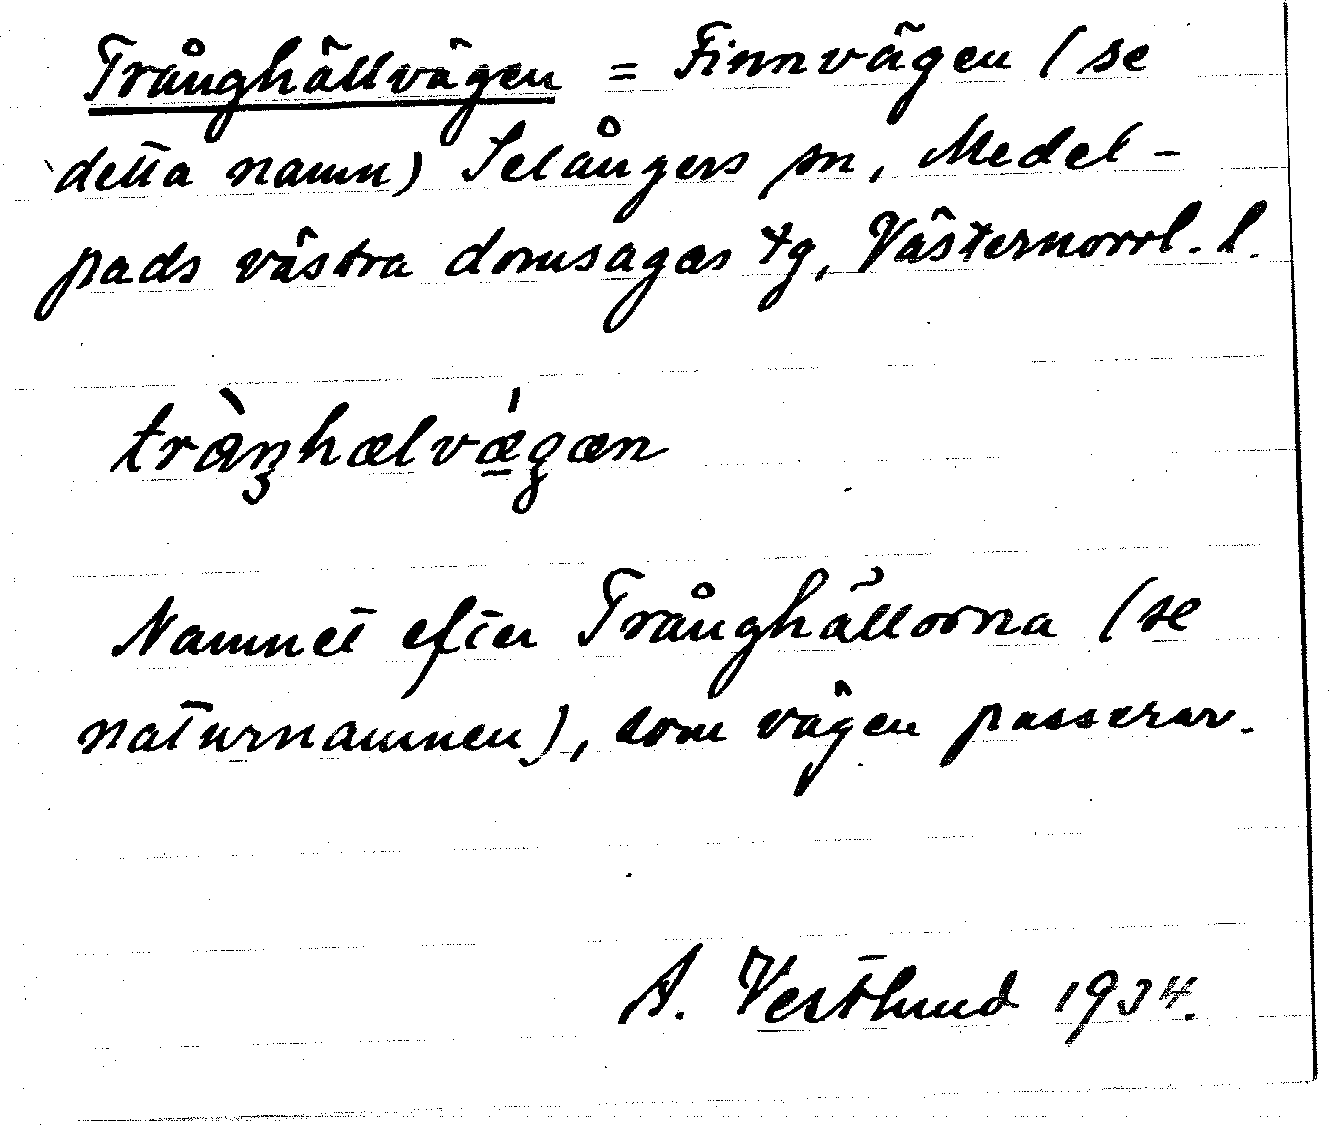 Trånghällvägen = Finnvägen (se
detta namn) Selångers sn, Medel-
pads västra domsagas tg, Västernorrl. l.
tràŋhælvǽgæn
Namnet efter Trånghällorna (se
naturnamnen), som vägen passerar.
A. Vestlund 1934.